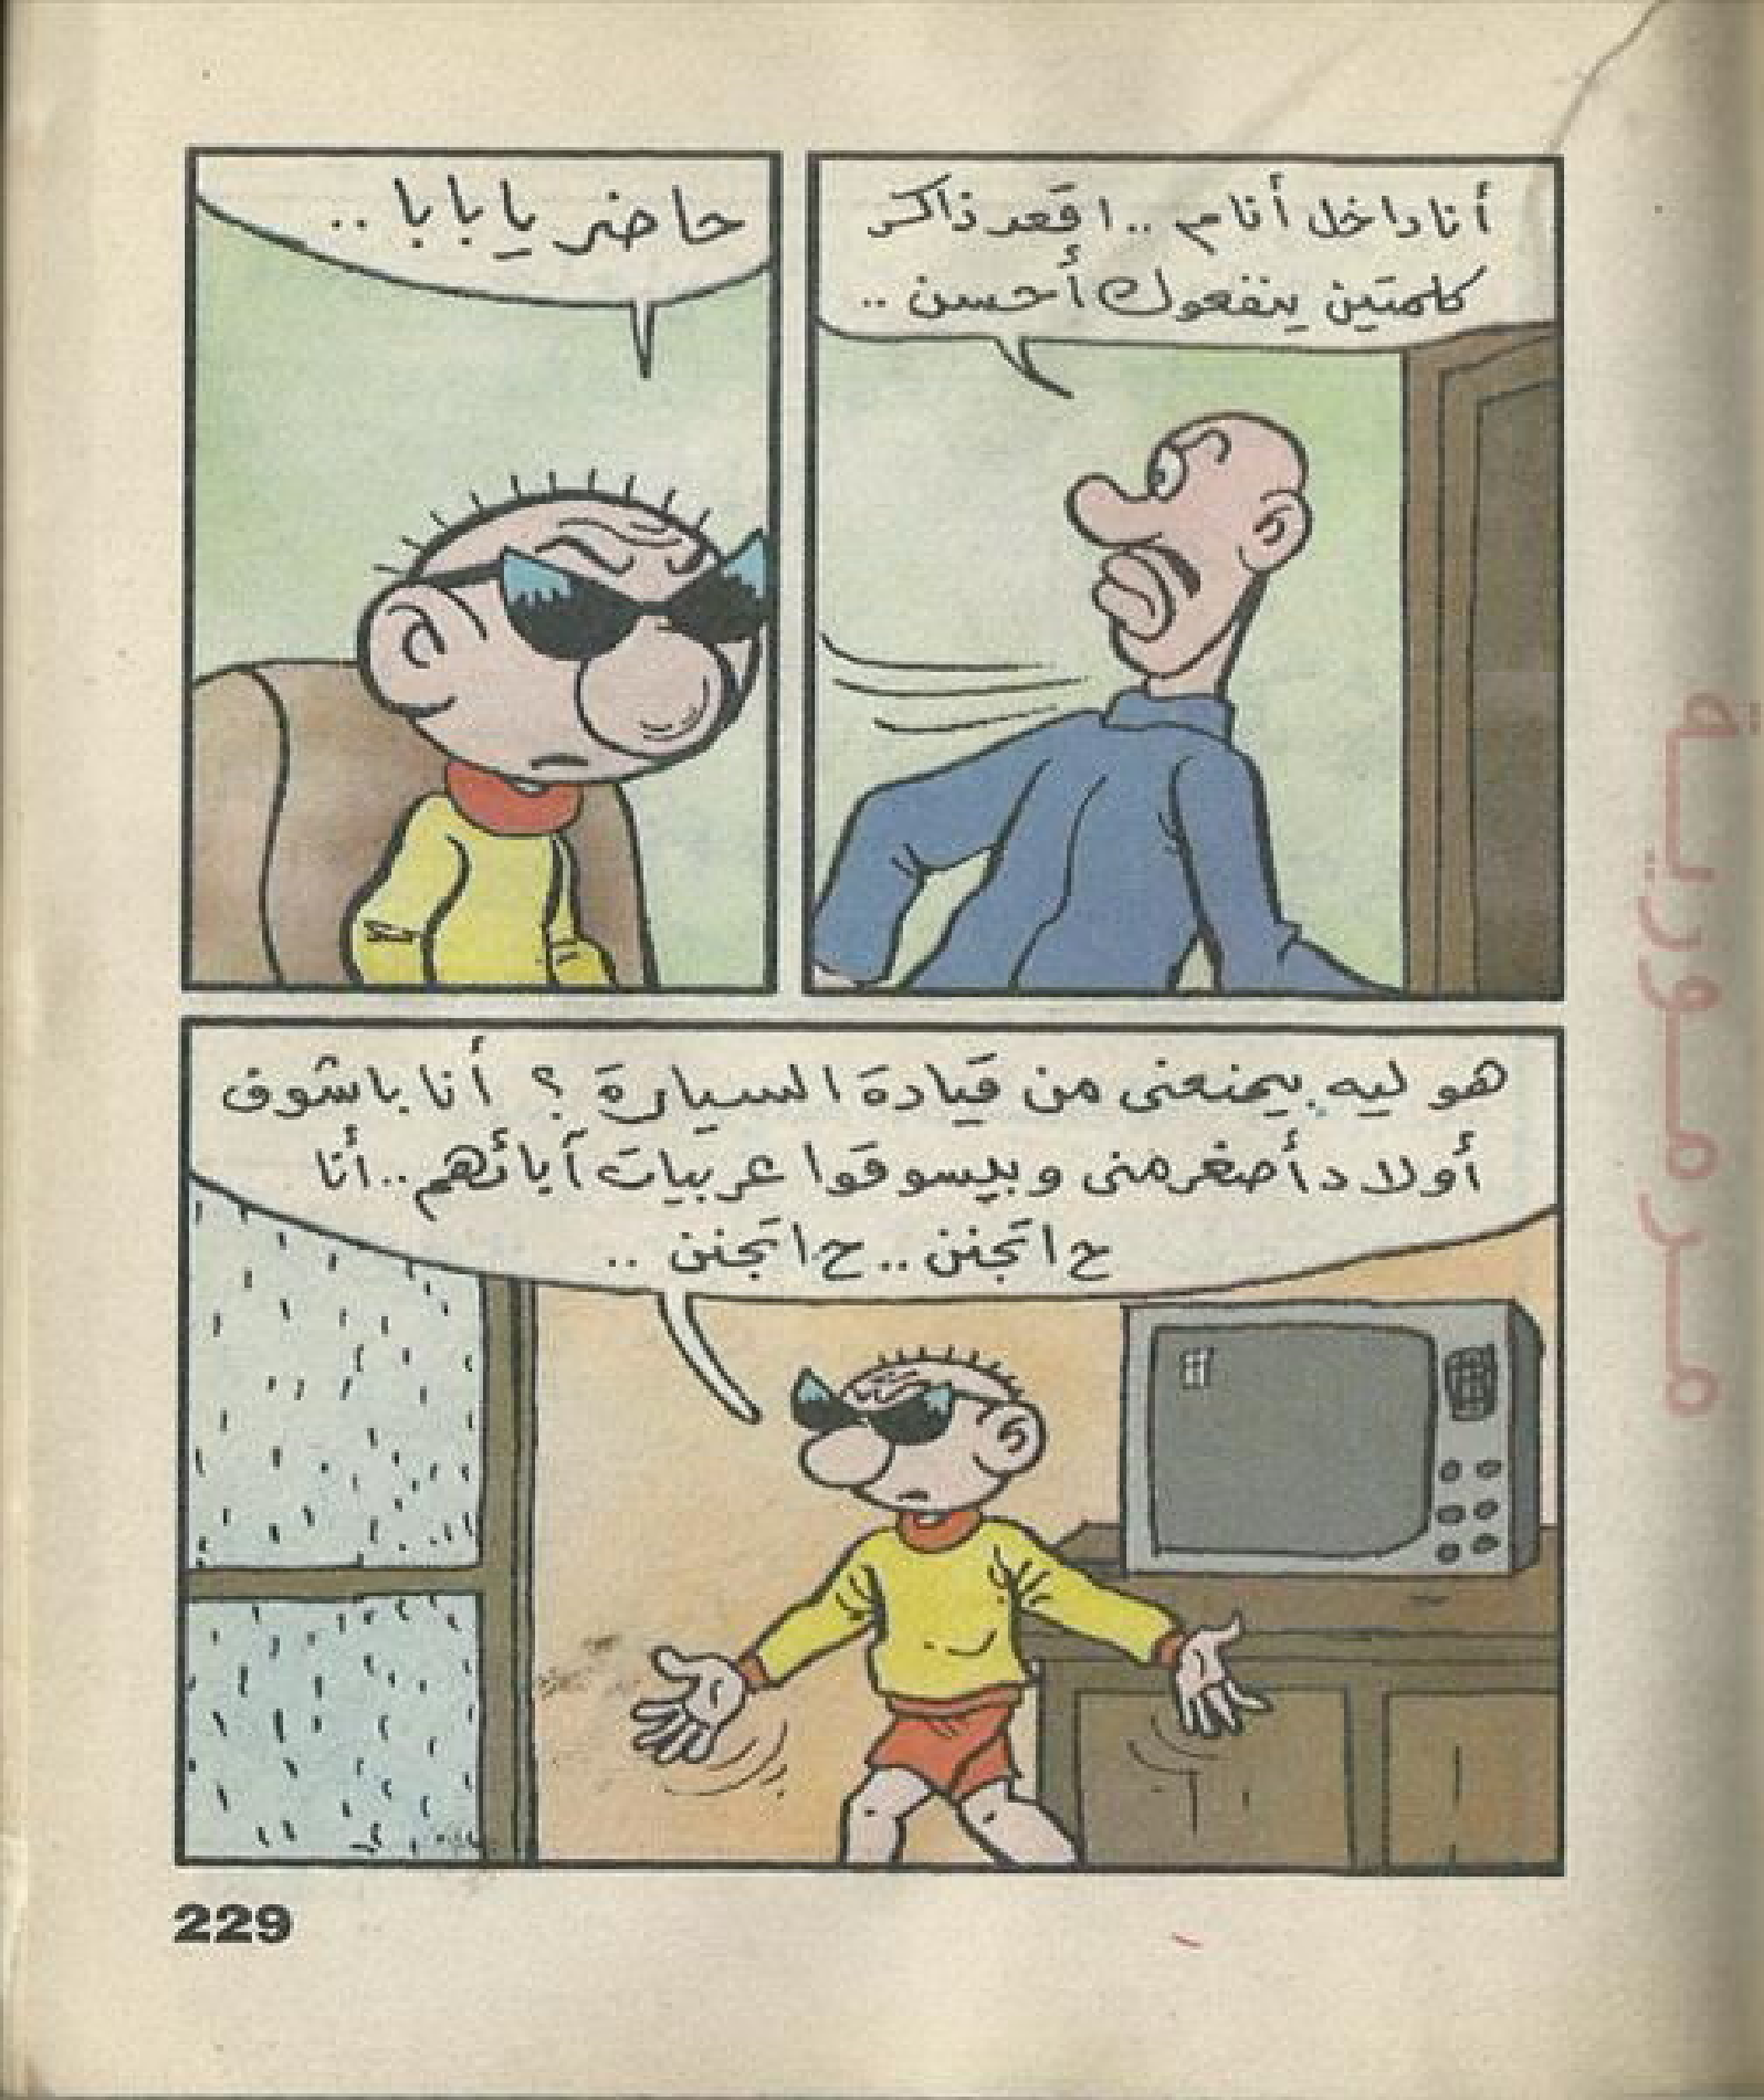 أنا داخل أنام .. اقعد ذاكر
كلمتين ينفعوك أحسن ..
حاضر يا بابا ..
هو ليه بيمنعنى من قيادة السيارة ؟ أنا باشوف
أولاد أصغر منى وبيسوقوا عربيات آبائهم .. أنا
ح اتجنن .. ح اتجنن ..
مرمورية
229